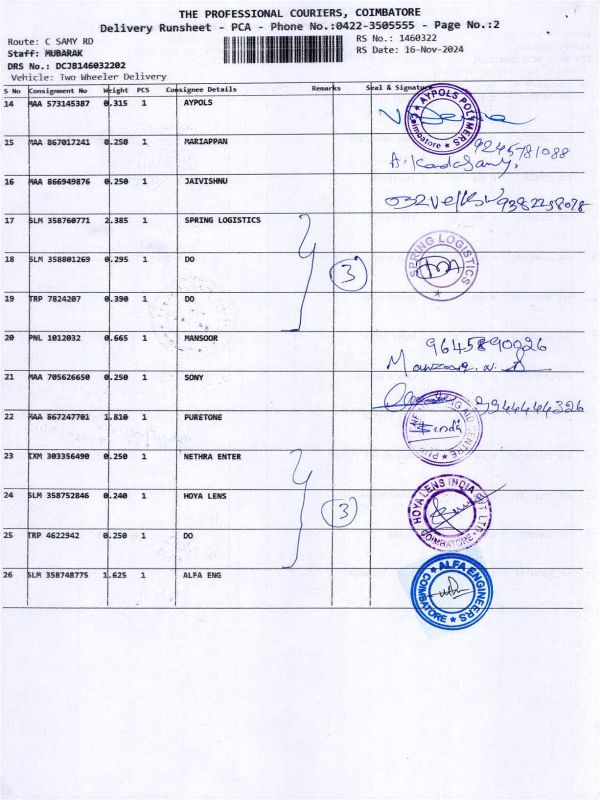 THE PROFESSIONAL COURIERS, COIMBATORE
Delivery Runsheet - PCA - Phone No.:0422-3505555 - Page No.:2
Route: C SAMY RD
RS No.: 1460322
Staff: MUBARAK
RS Date: 16-Nov-2024
DRS No.: DCJB146032202
Vehicle: Two Wheeler Delivery
S No Consignment No Weight PCS Consignee Details Remarks Seal & Signature
14 MAA 573145387 0.315 1 AYPOLS
AYPOLS POLYMERS Coimbatore
15 MAA 867017241 0.250 1 MARIAPPAN 9245781088
16 MAA 866949876 0.250 1 JAIVISHNU 9382258078
17 SLM 358760771 2.385 1 SPRING LOGISTICS
18 SLM 358801269 0.295 1 DO 3
SPRING LOGISTICS
19 TRP 7824207 0.390 1 DO
20 PNL 1012032 0.665 1 MANSOOR 9645890026
21 MAA 705626650 0.250 1 SONY 9944444326
22 MAA 867247701 1.810 1 PURETONE
23 IXM 303356490 0.250 1 NETHRA ENTER
24 SLM 358752846 0.240 1 HOYA LENS 3
HOYA LENS INDIA PVT LTD COIMBATORE
25 TRP 4622942 0.250 1 DO
26 SLM 358748775 1.625 1 ALFA ENG
ALFA ENGINEERS COIMBATORE